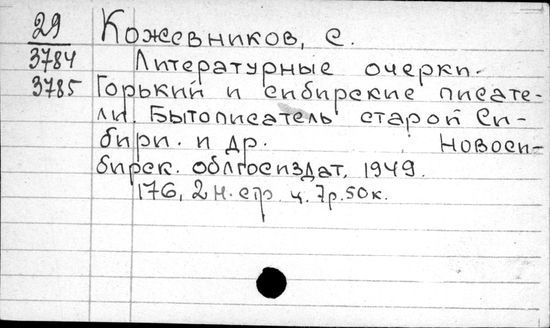 29 Кожевников, С.
3784 Литературные очерки.
3785 Горький и сибирские писате-
ли. Бытописатель старой Си-
бири. и др. Новоси-
бирск. облгосиздат, 1949.
176, 2 н. стр. ц. 7р.50к.